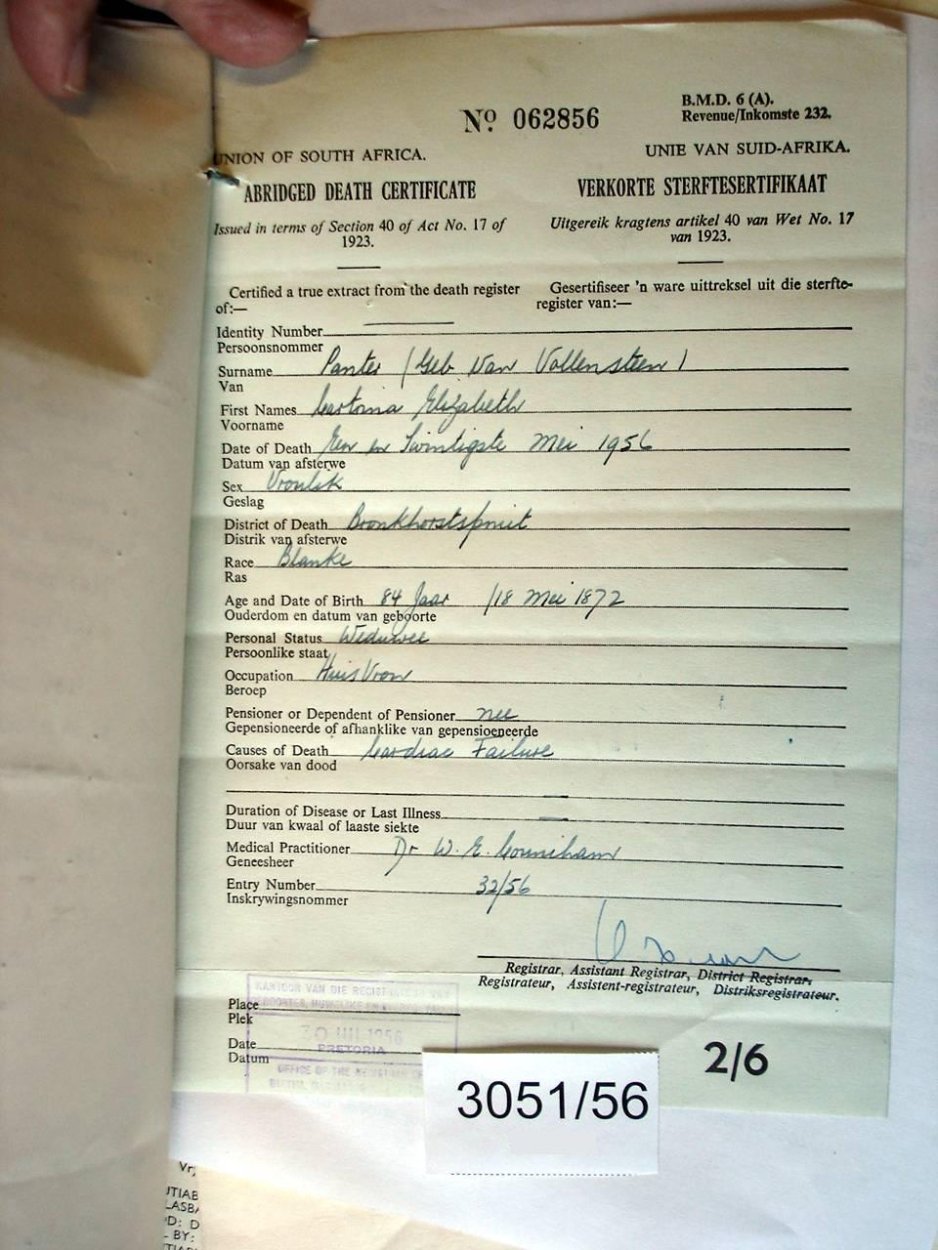 Nº 062856
B.M.D. 6 (A).
Revenue/Inkomste 232.
UNION OF SOUTH AFRICA.
UNIE VAN SUID-AFRIKA.
ABRIDGED DEATH CERTIFICATE
VERKORTE STERFTESERTIFIKAAT
Issued in terms of Section 40 of Act No. 17 of
1923.
Uitgereik kragtens artikel 40 van Wet No. 17
van 1923.
Certified a true extract from the death register
of:—
Gesertifiseer 'n ware uittreksel uit die sterfte-
register van:—
Identity Number
Persoonsnommer
Surname Panter (Geb Van Vollensteen)
Van
First Names Elizabeth
Voorname
Date of Death Een en Twintigste Mei 1956
Datum van afsterwe
Sex Vroulik
Geslag
District of Death Bronkhorstspruit
Distrik van afsterwe
Race Blanke
Ras
Age and Date of Birth 84 Jaar /18 Mei 1872
Ouderdom en datum van geboorte
Personal Status Weduwee
Persoonlike staat
Occupation HuisVrou
Beroep
Pensioner or Dependent of Pensioner nee
Gepensioneerde of afhanklike van gepensioeneerde
Causes of Death Cardiac Failure
Oorsake van dood
Duration of Disease or Last Illness —
Duur van kwaal of laaste siekte
Medical Practitioner Dr W. E. Couniham
Geneesheer
Entry Number 32/56
Inskrywingsnommer
Registrar, Assistant Registrar, District Registrar.
Registrateur, Assistent-registrateur, Distriksregistrateur.
KANTOOR VAN DIE
Place
Plek
1956
Date
PRETORIA
Datum
OFFICE OF THE
2/6
3051/56